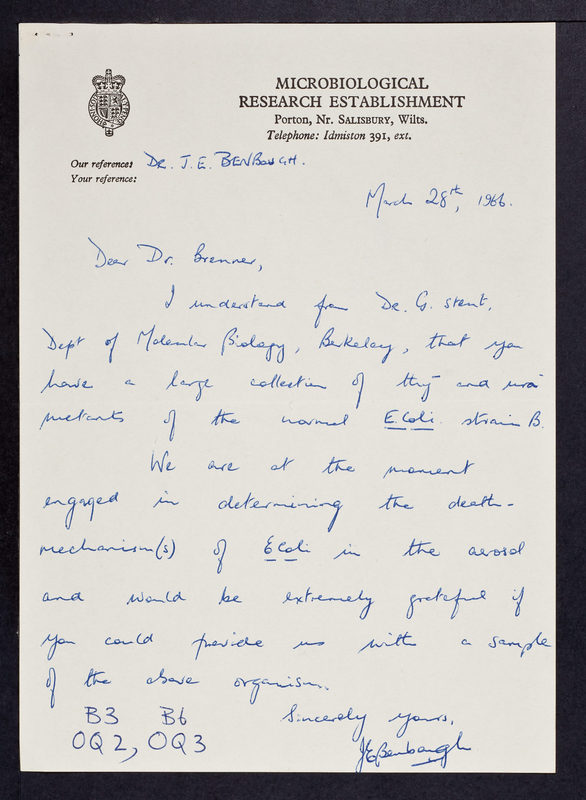 MICROBIOLOGICAL
RESEARCH ESTABLISHMENT
Porton, Nr. SALISBURY, Wilts.
Telephone: Idmiston 391, ext.
Our reference: DR. J. E. BENBOUGH.
Your reference:
March 28th, 1966.
Dear Dr. Brenner,
I understand from Dr. G. Stent,
Dept of Molecular Biology, Berkeley, that you
have a large collection of thy- and ura-
mutants of the normal E. Coli strain B.
We are at the moment
engaged in determining the death-
mechanism(s) of E Coli in the aerosol
and would be extremely grateful if
you could provide us with a sample
of the above organism.
B3 B6
Sincerely yours,
OQ2, OQ3
JEBenbough